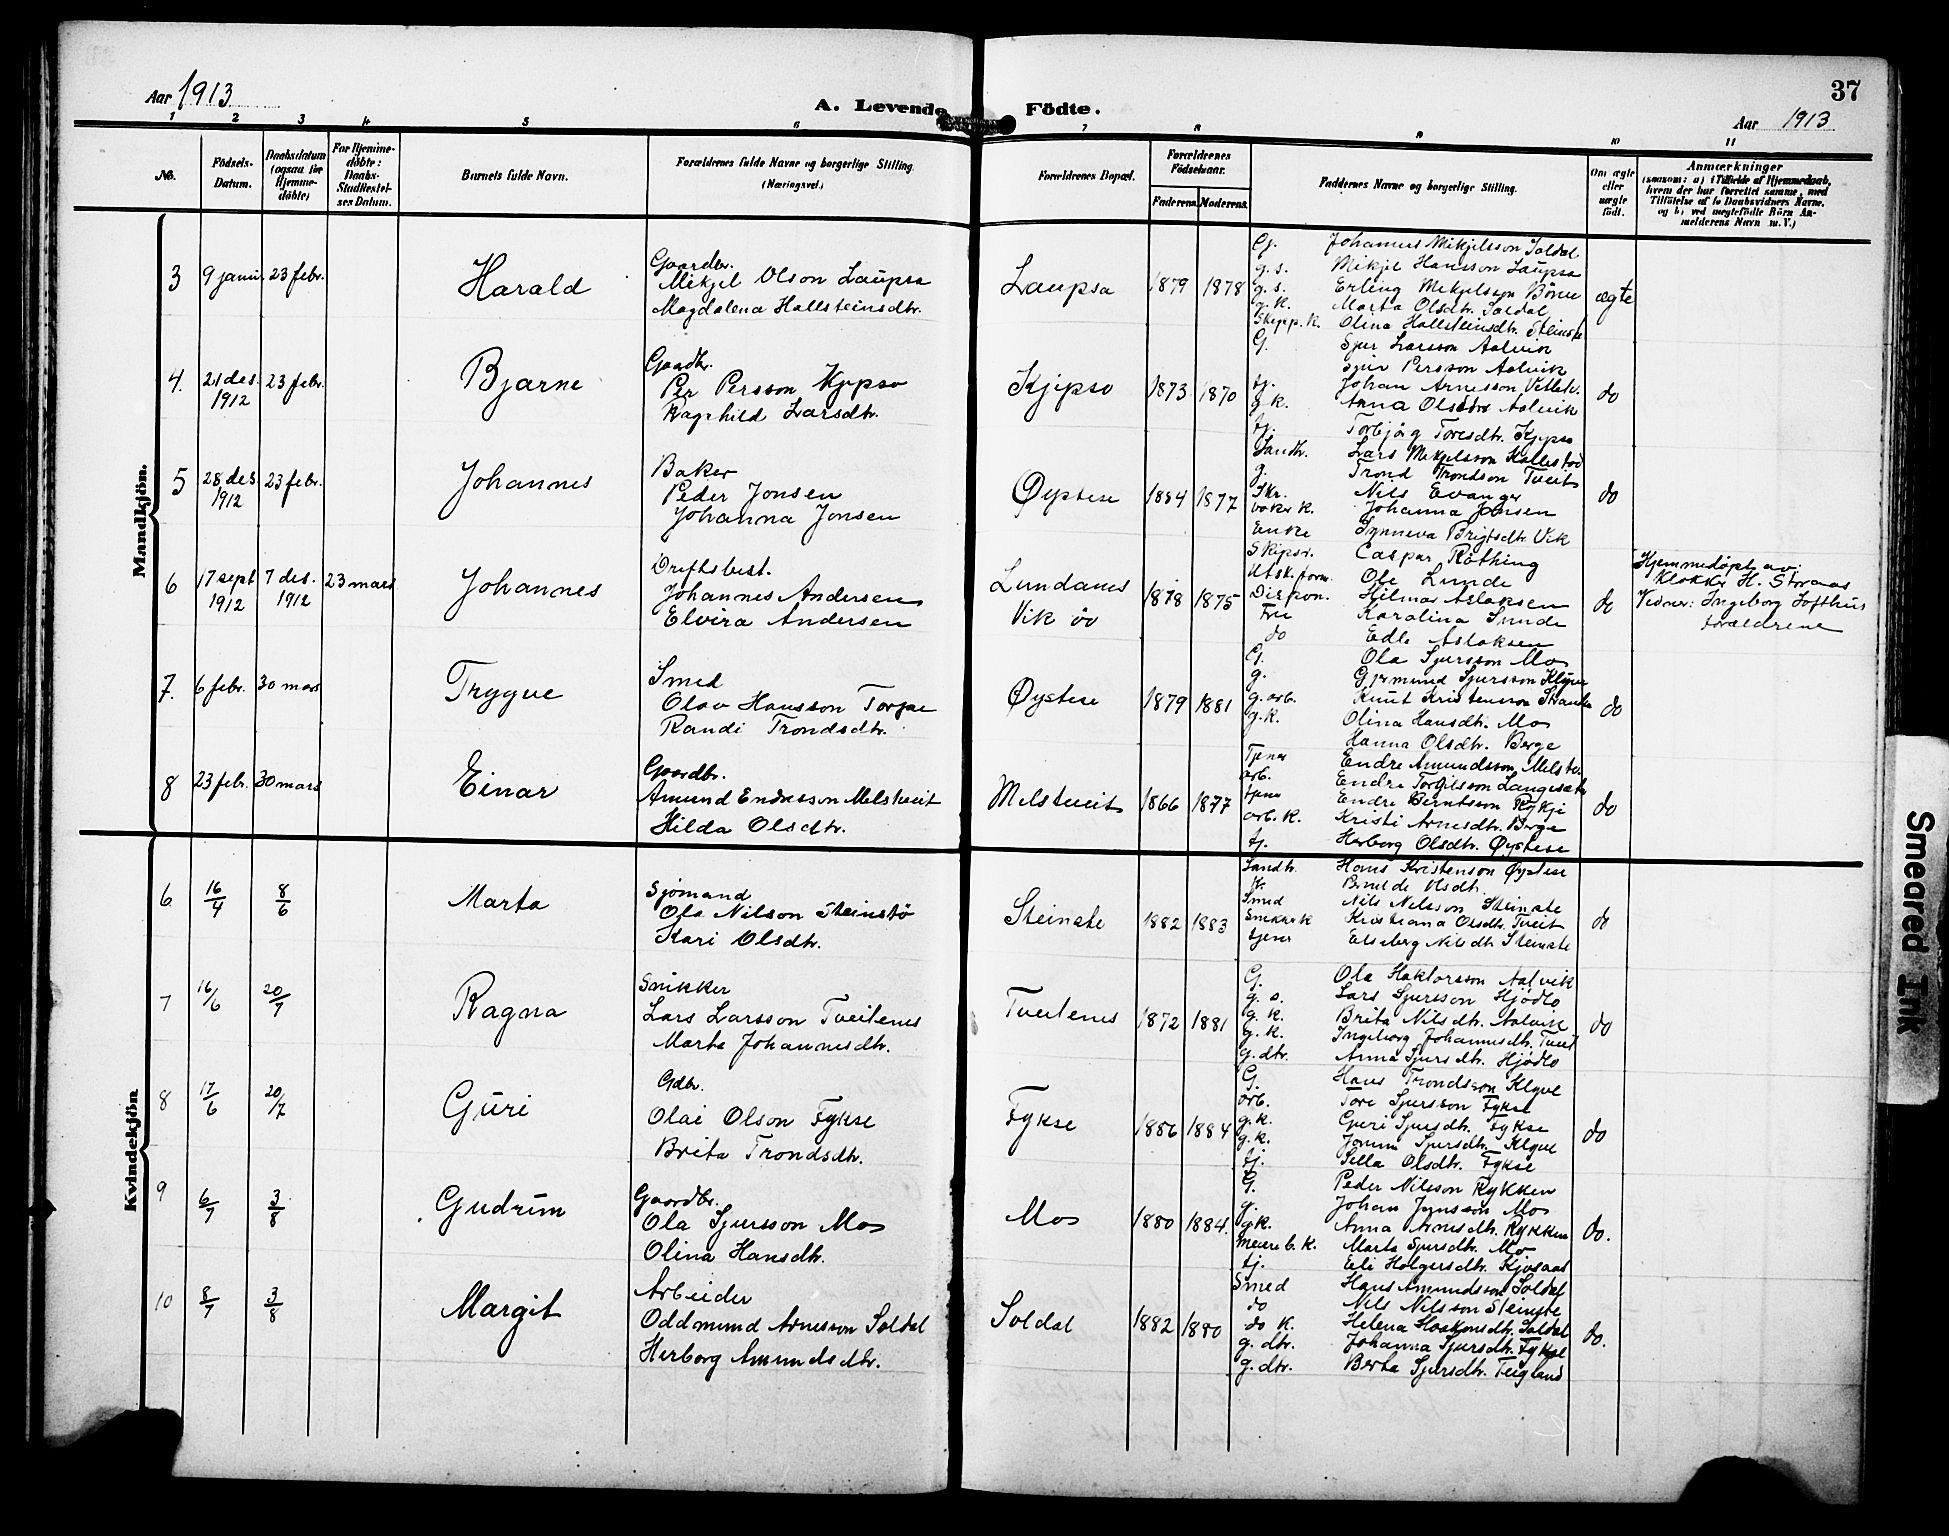 37
Aar 1913
A. Levende Födte.
Aar 1913
1 2 3 4 5 6 7 8 9 10 11
No.
Födsels-Datum.
Daabsdatum (ogsaa for Hjemmedöbte)
For Hjemmedöbte: Daabs-Stadfæstelses Datum.
Barnets fulde Navn.
Forældrenes fulde Navne og borgerlige Stilling. (Næringsvei.)
Forældrenes Bopæl.
Forældrenes Födselsaar.
Faderens. Moderens.
Faddernes Navne og borgerlige Stilling.
Om ægte eller uægte födt.
Anmærkninger
(saasom: a) i Tilfælde af Hjemmedaab, hvem der har forrettet samme, med Tilföielse af to Daabsvidners Navne, og b) ved uægtefödte Börn Anmelderens Navn m. V.)
Mandkjön.
3 9 janu. 23 febr. Harald
Gaardbr.
Mikjel Olson Laupsa
Magdalena Hallsteinsdtr.
Laupsa 1879 1878
G. Johannes Mikjelsson Soldal
g.s. Mikjel Hansson Laupsa
g.s. Erling Mikjelsson Börve
g.k. Marta Olsdtr. Soldal
Skipp.k. Olina Hallsteinsdtr.
ægte
4. 21 des. 1912 23 febr. Bjarne
Gaardbr.
Per Persson Kjepso
Ragnhild Larsdtr.
Kjepso 1873 1870
G. Sjur Larsson Aalvik
Sjur Persson Aalvik
tj. Johan Arnesson
g.k. Anna Olsdtr Aalvik
tj. Torbjörg Toresdtr. Kjepso
do
5 28 des 1912 23 febr. Johannes
Baker
Peder Jonsen
Johanna Jonsen
Øystese 1884 1877
Landh. Lars Mikjelsson Kallestad
g. Trond Trondson Tveit
Skr. Nils Evanger
baker k. Johanna Jonsen
Enke Synneva Brigtsdtr Vik
do
6 17 sept 1912 7 des. 1912 23 mars Johannes
Driftsbest.
Johannes Andersen
Elvira Andersen
Lundanes
Vik öv
1878 1875
Skipsr. Caspar Röthing
Utsk.form. Ole Lunde
Dispon. Hilmar Aslaksen
Fru Karolina Lunde
do Edle Aslaksen
do
Hjemmedöpt av:
Klokker H. Straas
Vidner: Ingeborg Lofthus
Forældrene
7. 6 febr. 30 mars Trygve
Smed
Olav Hansson Torpe
Randi Trondsdtr.
Øystese 1879 1881
G. Ola Sjursson Mo
g. Germund Sjursson Klyve
g.arb. Knut Kristenson
g.k. Olina Hansdtr. Mo
Hanna Olsdtr. Berge
do
8 23 febr. 30 mars Einar
Gaardbr.
Amund Endresson Melstveit
Hilda Olsdtr.
Melstveit 1866 1877
Tjener Endre Amundsson
arb. Endre Torgilsson Langesæter
tjener Endre Berntsson Rykje
arb.k. Kristi Arnesdtr. Berge
tj. Herborg Olsdtr. Øystese
do
Kvindekjön
6 16/4 8/6 Marta
Sjömand
Ola Nilson Steinstö
Kari Olsdtr.
Steinstö 1882 1883
Landh. Hans Kristenson Øystese
Olsdtr.
Smed Nils Nilsson Steinstö
Snikker k Kristiana Olsdtr. Tveit
tjener Elseberg Nilsdtr Steinstö
do
7 16/6 20/7 Ragna
Snikker
Lars Larsson Tveitenes
Marta Johannesdtr.
Tveitenes 1872 1881
G. Ola Haktorsson Aalvik
g.s. Lars Sjursson Hjödlo
g.k. Brita Nilsdtr. Aalvik
g.k. Ingeborg Johannesdtr. Tveit
g.dtr. Anna Sjursdtr. Hjödlo
do
8 17/6 20/7 Guri
Gdbr.
Olai Olson Fykse
Brita Trondsdtr.
Fykse 1886 1884
G. Hans Trondsson Klyve
arb. Tore Sjursson Fykse
g.k. Guri Sjursdtr. Fykse
g.k. Sjursdtr. Klyve
tj. Sella Olsdtr. Fykse
do
9 6/7 3/8 Gudrun
Gaardbr.
Ola Sjursson Mo
Olina Hansdtr.
Mo 1880 1884.
G. Peder Nilsson Rykken
g. Johan Jonsson Mo
g.k. Anna Arnesdtr. Rykken
Meiere b.k. Marta Sjursdtr. Mo
tj. Eli Holgersdtr. Kjosaas
do.
10 8/7 3/8 Margit
Arbeider
Oddmund Arnesson Soldal
Herborg Amundsdtr.
Soldal 1882 1880
Smed Hans Amundsson Soldal
do Nils Nilsson Steinstö
do k. Helena Haakonsdtr. Soldal
g.dtr. Johanna Sjursdtr. Fykse
g.dtr. Berta Sjursdtr. Teigland
do.
Smeared Ink